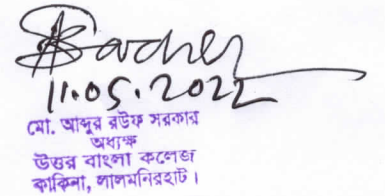 11.05.2022
মো. আব্দুর রউফ সরকার
অধ্যক্ষ
উত্তর বাংলা কলেজ
কাকিনা, লালমনিরহাট।